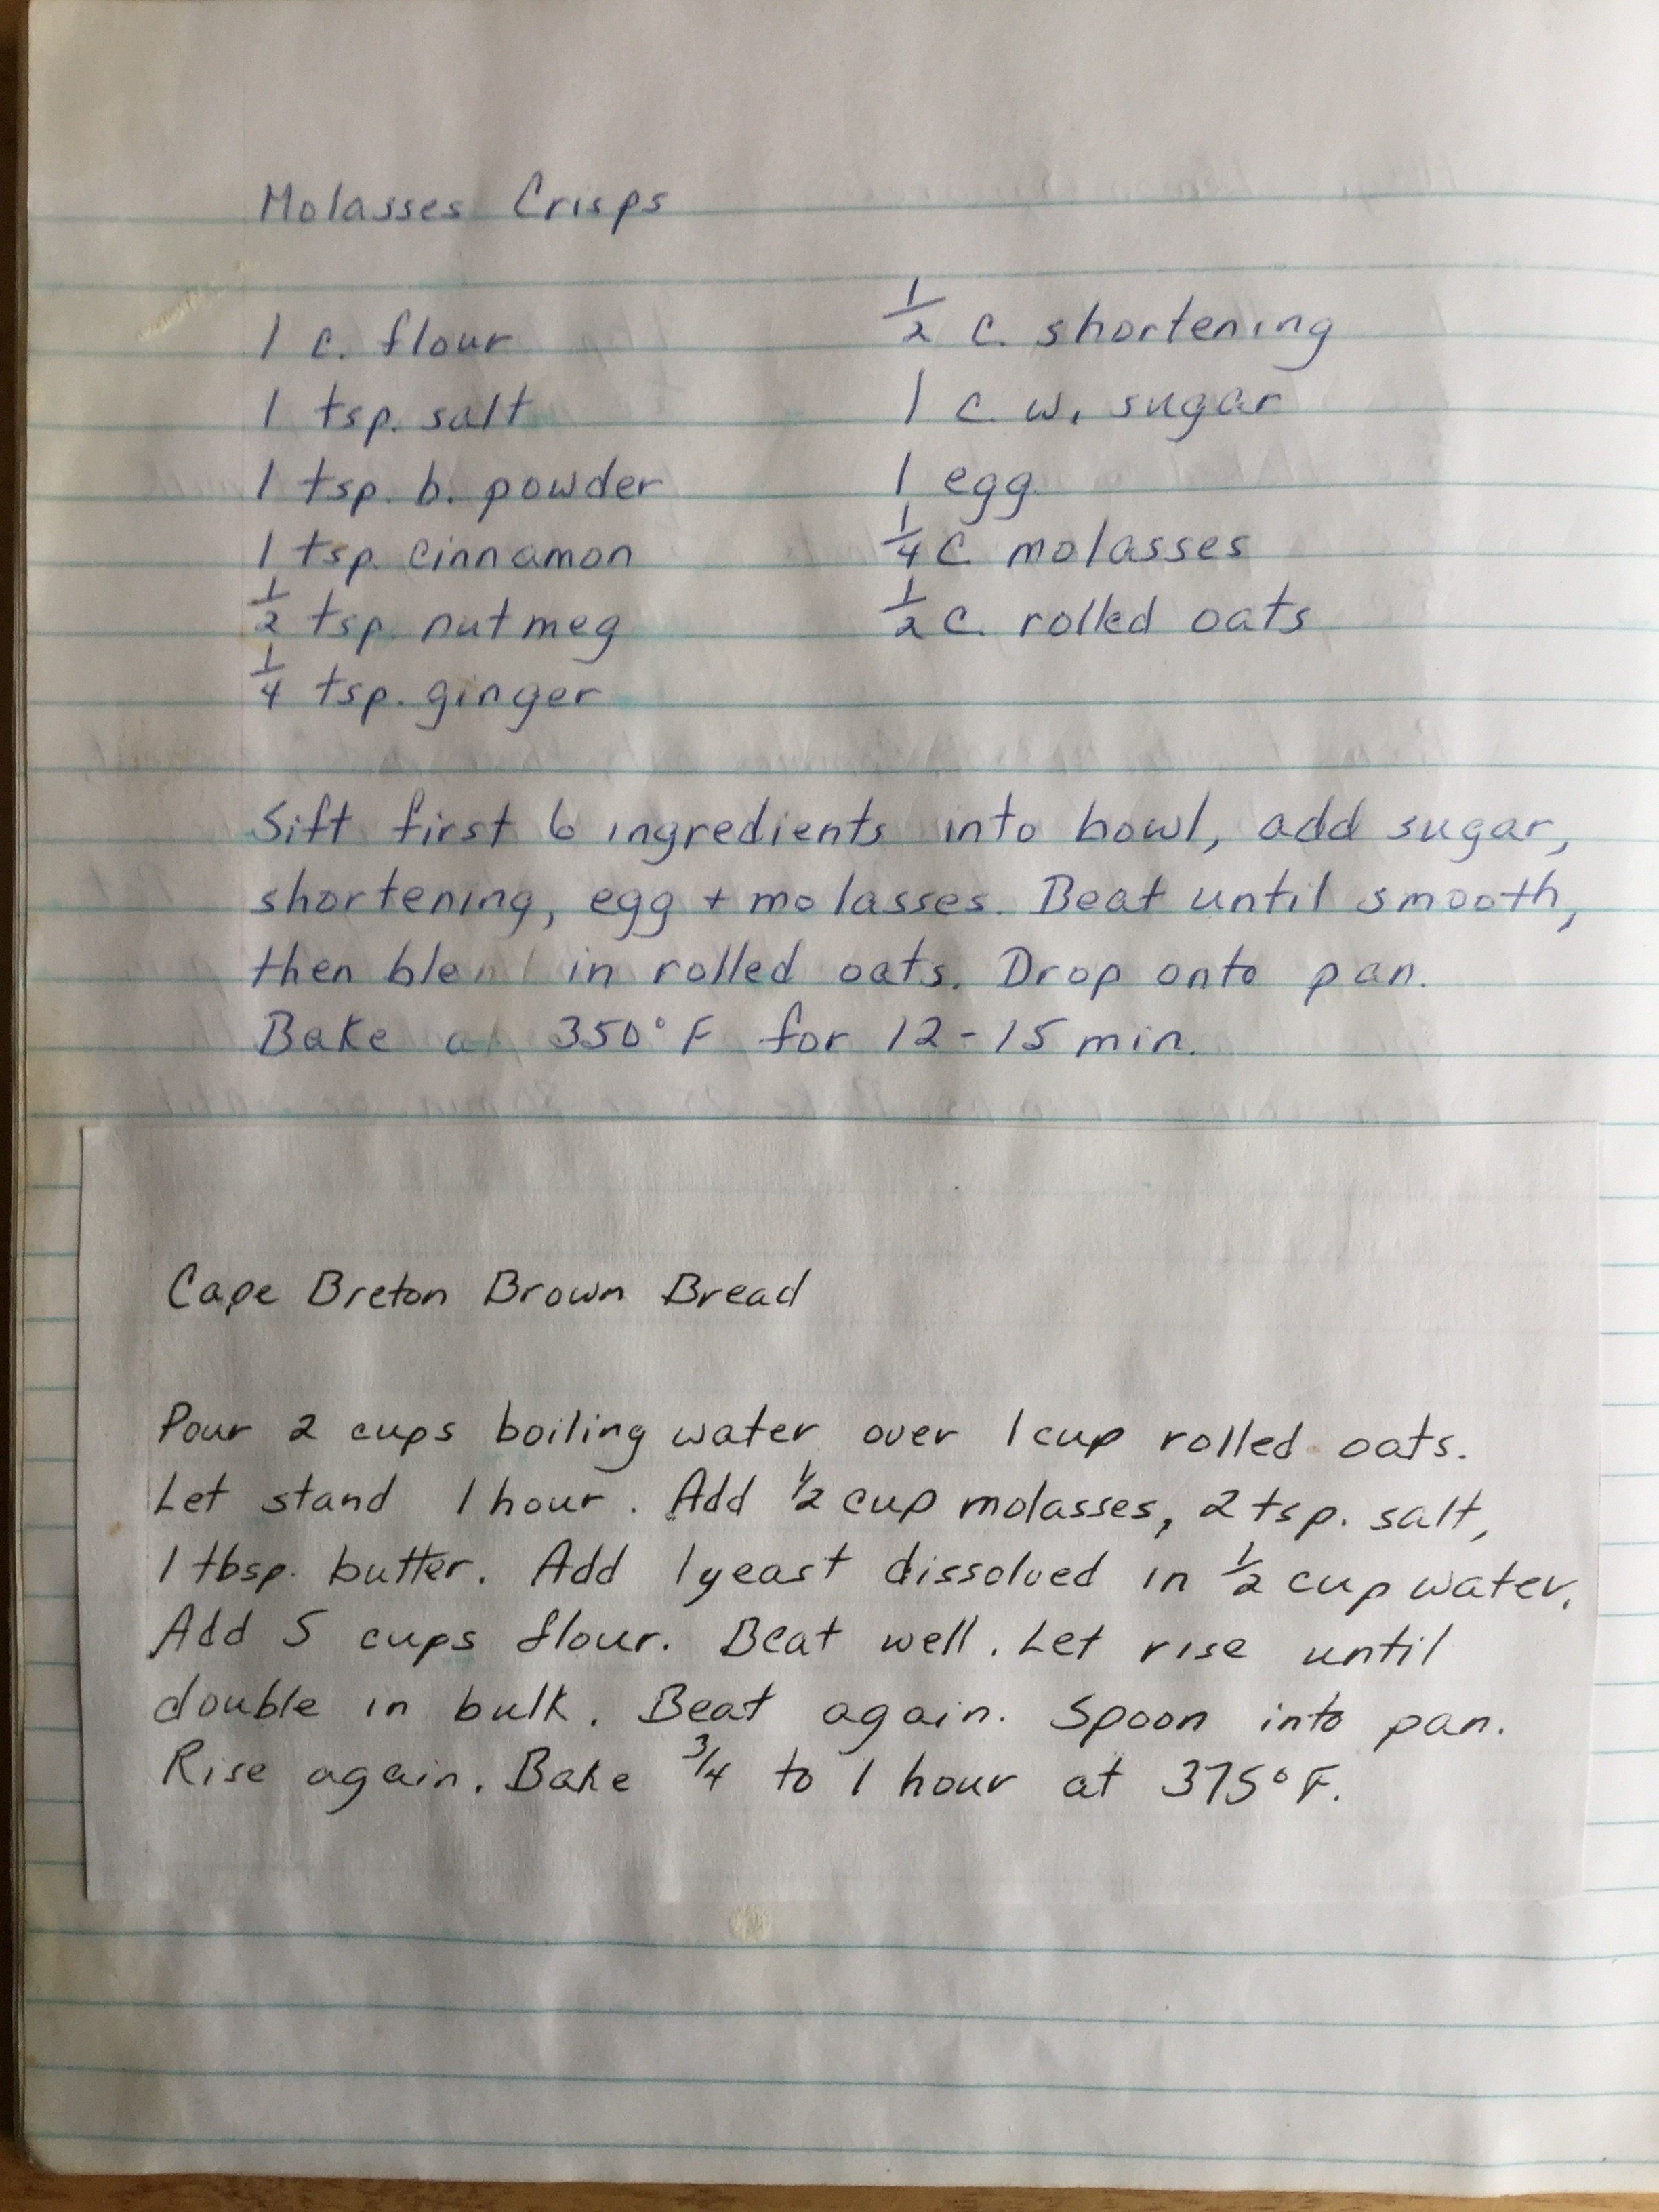 Molasses Crisps
1 c. flour
1 tsp. salt
1 tsp. b. powder
1 tsp. cinnamon
1/2 tsp. nutmeg
1/4 tsp. ginger
1/2 c. shortening
1 c. w. sugar
1 egg
1/4 c. molasses
1/2 c. rolled oats
Sift first 6 ingredients into bowl, add sugar,
shortening, egg + molasses. Beat until smooth,
then blend in rolled oats. Drop onto pan.
Bake at 350°F for 12-15 min.
Cape Breton Brown Bread
Pour 2 cups boiling water over 1 cup rolled oats.
Let stand 1 hour. Add 1/2 cup molasses, 2 tsp. salt,
1 tbsp. butter. Add 1 yeast dissolved in 1/2 cup water.
Add 5 cups flour. Beat well. Let rise until
double in bulk. Beat again. Spoon into pan.
Rise again. Bake 3/4 to 1 hour at 375°F.